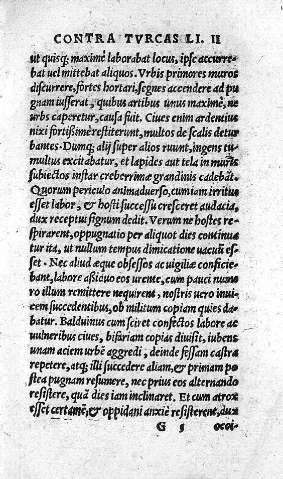 CONTRA TVRCAS LI. II
ut quisq; maximè laborabat locus, ipse accurre-
bat uel mittebat aliquos. Vrbis primores muros
discurrere, fortes hortari, segnes accendere ad pu
gnam iusserat, quibus artibus unus maximè, ne
urbs caperetur, causa fuit. Ciues enim ardentius
nixi fortißimè restiterunt, multos de scalis detur
bantes. Dumq; alij super alios ruunt, ingens tu-
multus excitabatur, et lapides aut tela in muris
subiectos instar creberrimæ grandinis cadebāt.
Quorum periculo animaduerso, cum iam irritus
esset labor, & hosti successu cresceret audacia,
dux receptui signum dedit. Verum ne hostes re-
spirarent, oppugnatio per aliquot dies continua
tur ita, ut nullum tempus dimicatione uacuū es-
set. Nec aliud æque obsessos ac uigiliæ conficie-
bant, labore aßiduo eos urente, cum pauci nume
ro illum remittere nequirent, nostris uero inui-
cem succedentibus, ob militum copiam quies da-
batur. Balduinus cum sciret confectos labore ac
uulneribus ciues, bifariam copias diuisit, iubens
unam aciem urbē aggredi, deinde fessam castra
repetere, atq; illi succedere aliam, & primam po
stea pugnam resumere, nec prius eos alternando
resistere, quā dies iam inclinaret. Et cum atrox
esset certamē, & oppidani anxiè resisterent, dux
G 5 occi-